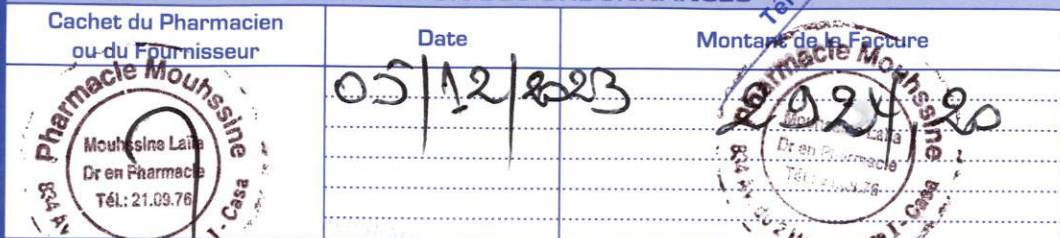 ORDONNANCES
Cachet du Pharmacien
ou du Fournisseur
Date
Montant de la Facture
Pharmacie Mouhssine
Mouhssine Laila
Dr en Pharmacie
Tél.: 21.09.76
834 Av
I - Casa
05/12/2023
Pharmacie Mouhssine
Mouhssine Laila
Dr en Pharmacie
Tél.: 21.09.76
834 Av. du 2
I - Casa